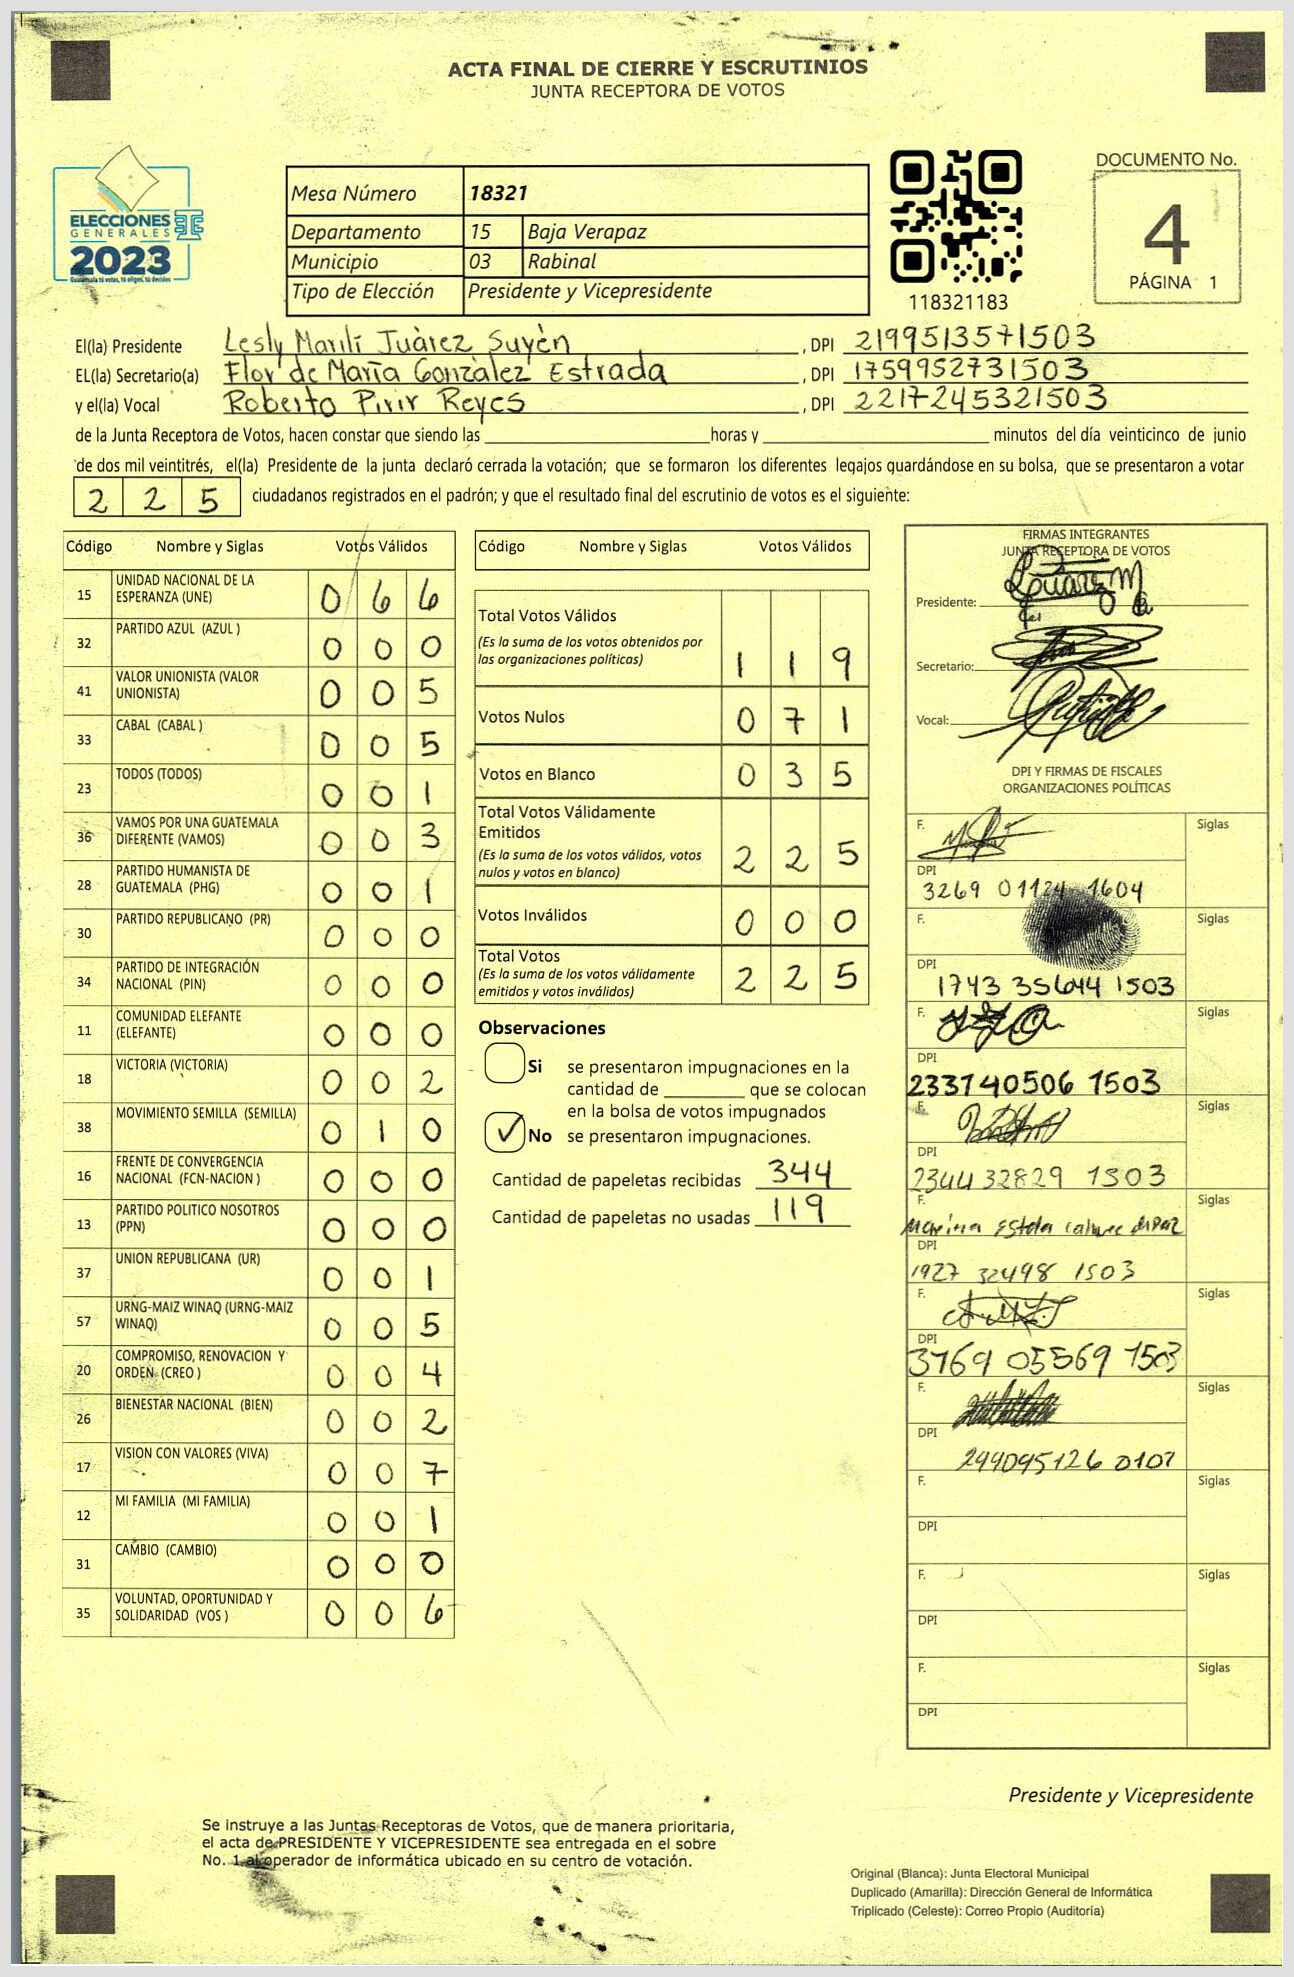 ACTA FINAL DE CIERRE Y ESCRUTINIOS
JUNTA RECEPTORA DE VOTOS
ELECCIONES
GENERALES
2023
Guatemala tú votas, tú eliges, tú decides
Mesa Número 18321
Departamento 15 Baja Verapaz
Municipio 03 Rabinal
Tipo de Elección Presidente y Vicepresidente
118321183
DOCUMENTO No.
4
PÁGINA 1
El(la) Presidente Lesly Marilí Juàrez Suyèn , DPI 2199513571503
EL(la) Secretario(a) Flor de María Gonzàlez Estrada , DPI 1759952731503
y el(la) Vocal Roberto Pirir Reyes , DPI 2217245321503
de la Junta Receptora de Votos, hacen constar que siendo las ____ horas y ____ minutos del día veinticinco de junio
de dos mil veintitrés, el(la) Presidente de la junta declaró cerrada la votación; que se formaron los diferentes legajos guardándose en su bolsa, que se presentaron a votar
2 2 5 ciudadanos registrados en el padrón; y que el resultado final del escrutinio de votos es el siguiente:
Código Nombre y Siglas Votos Válidos
15 UNIDAD NACIONAL DE LA ESPERANZA (UNE) 0 6 6
32 PARTIDO AZUL (AZUL ) 0 0 0
41 VALOR UNIONISTA (VALOR UNIONISTA) 0 0 5
33 CABAL (CABAL ) 0 0 5
23 TODOS (TODOS) 0 0 1
36 VAMOS POR UNA GUATEMALA DIFERENTE (VAMOS) 0 0 3
28 PARTIDO HUMANISTA DE GUATEMALA (PHG) 0 0 1
30 PARTIDO REPUBLICANO (PR) 0 0 0
34 PARTIDO DE INTEGRACIÓN NACIONAL (PIN) 0 0 0
11 COMUNIDAD ELEFANTE (ELEFANTE) 0 0 0
18 VICTORIA (VICTORIA) 0 0 2
38 MOVIMIENTO SEMILLA (SEMILLA) 0 1 0
16 FRENTE DE CONVERGENCIA NACIONAL (FCN-NACION ) 0 0 0
13 PARTIDO POLITICO NOSOTROS (PPN) 0 0 0
37 UNION REPUBLICANA (UR) 0 0 1
57 URNG-MAIZ WINAQ (URNG-MAIZ WINAQ) 0 0 5
20 COMPROMISO, RENOVACION Y ORDEN (CREO ) 0 0 4
26 BIENESTAR NACIONAL (BIEN) 0 0 2
17 VISION CON VALORES (VIVA) 0 0 7
12 MI FAMILIA (MI FAMILIA) 0 0 1
31 CAMBIO (CAMBIO) 0 0 0
35 VOLUNTAD, OPORTUNIDAD Y SOLIDARIDAD (VOS ) 0 0 6
Código Nombre y Siglas Votos Válidos
Total Votos Válidos
(Es la suma de los votos obtenidos por
las organizaciones políticas) 1 1 9
Votos Nulos 0 7 1
Votos en Blanco 0 3 5
Total Votos Válidamente
Emitidos
(Es la suma de los votos válidos, votos
nulos y votos en blanco) 2 2 5
Votos Inválidos 0 0 0
Total Votos
(Es la suma de los votos válidamente
emitidos y votos inválidos) 2 2 5
Observaciones
Si se presentaron impugnaciones en la
cantidad de ____ que se colocan
en la bolsa de votos impugnados
No se presentaron impugnaciones.
Cantidad de papeletas recibidas 344
Cantidad de papeletas no usadas 119
FIRMAS INTEGRANTES
JUNTA RECEPTORA DE VOTOS
Presidente:
Secretario:
Vocal:
DPI Y FIRMAS DE FISCALES
ORGANIZACIONES POLÍTICAS
F. Siglas
DPI
3269 01124 1604
F. Siglas
DPI
1743 35644 1503
F. Siglas
DPI
2337 40506 1503
F. Siglas
DPI
2344 32829 1503
F. Siglas
DPI
1927 32498 1503
F. Siglas
DPI
3769 05569 1503
F. Siglas
DPI
299095126 0107
F. Siglas
DPI
F. Siglas
DPI
F. Siglas
DPI
Presidente y Vicepresidente
Se instruye a las Juntas Receptoras de Votos, que de manera prioritaria,
el acta de PRESIDENTE Y VICEPRESIDENTE sea entregada en el sobre
No. 1 al operador de informática ubicado en su centro de votación.
Original (Blanca): Junta Electoral Municipal
Duplicado (Amarilla): Dirección General de Informática
Triplicado (Celeste): Correo Propio (Auditoría)